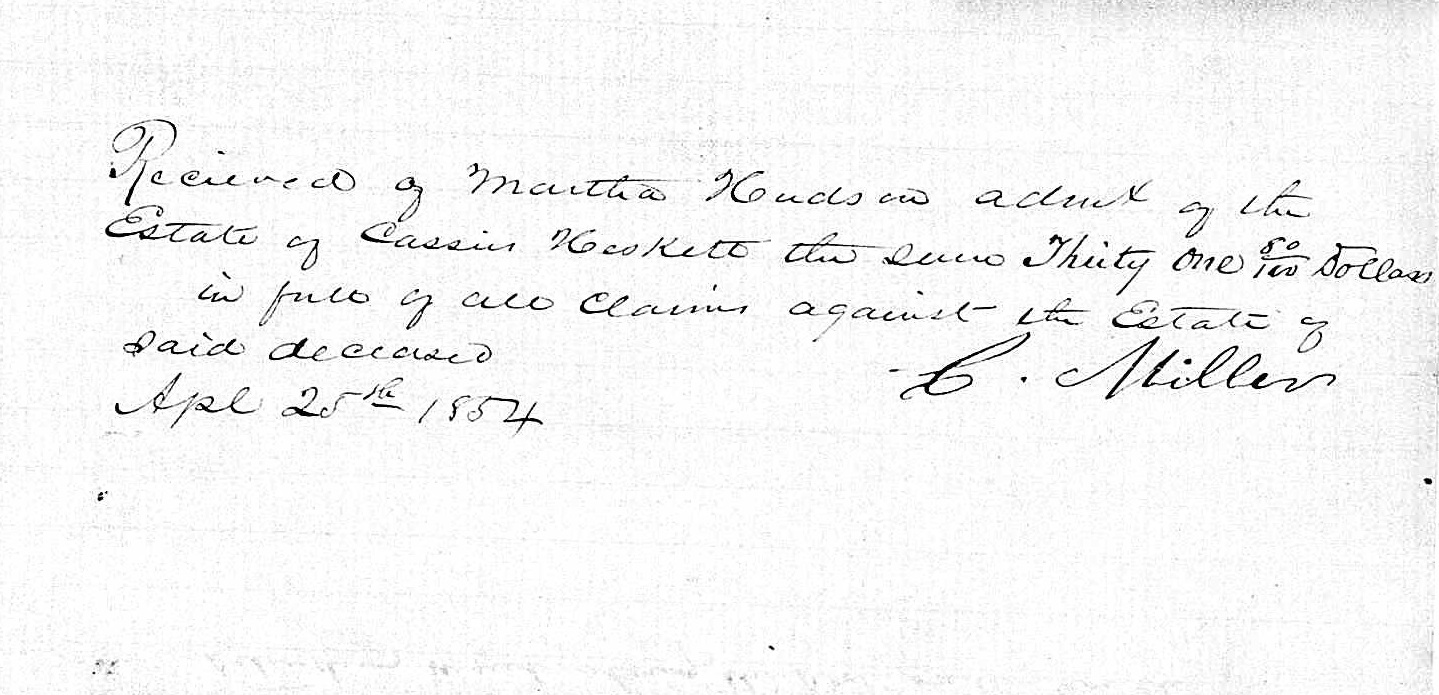 Recieved of Martha Hudson admx of the
Estate of Cassius Heskett the sum Thirty One 50/100 Dollars
in full of all Claims against the Estate of
said deceased
C. Miller
Apl 25th 1854